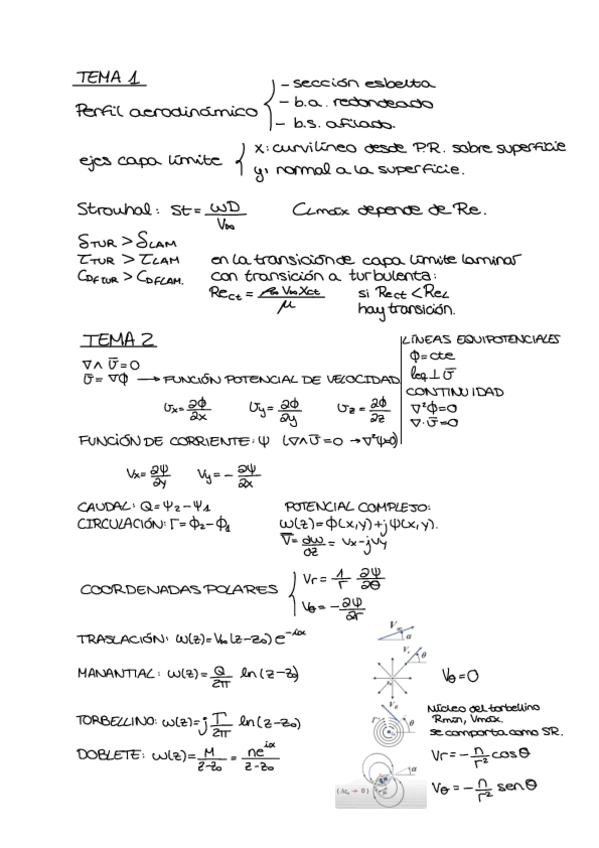 TEMA 1
Perfil aerodinámico { – sección esbelta
– b.a. redondeado
– b.s. afilado.
ejes capa límite { x: curvilíneo desde P.R. sobre superficie
y: normal a la superficie.
Strouhal: St = ωD / V∞   CLmáx depende de Re.
δTUR > δLAM
τTUR > τLAM   en la transición de capa límite laminar
CDf TUR > CDf LAM.   con transición a turbulenta:
Rect = ρ∞ V∞ Xct / μ   si Rect < ReL
hay transición.
TEMA 2
∇∧v̄ = 0
v̄ = ∇Φ → FUNCIÓN POTENCIAL DE VELOCIDAD
vx = ∂Φ/∂x   vy = ∂Φ/∂y   vz = ∂Φ/∂z
LÍNEAS EQUIPOTENCIALES
Φ = cte
leq ⊥ v̄
CONTINUIDAD
∇²Φ = 0
∇·v̄ = 0
FUNCIÓN DE CORRIENTE: Ψ (∇∧v̄ = 0 → ∇²Ψ=0)
Vx = ∂Ψ/∂y   Vy = - ∂Ψ/∂x
CAUDAL: Q = Ψ2 – Ψ1   POTENCIAL COMPLEJO:
CIRCULACIÓN: Γ = Φ2 – Φ1   ω(z) = Φ(x,y) + jΨ(x,y).
V̄ = dω/dz = vx - jvy
COORDENADAS POLARES { Vr = 1/r ∂Ψ/∂θ
Vθ = - ∂Ψ/∂r
TRASLACIÓN: ω(z) = V∞ (z-z0) e^-iα   V∞ α
MANANTIAL: ω(z) = Q/2π ln(z-z0)   Vr θ   Vθ = 0
TORBELLINO: ω(z) = j Γ/2π ln(z-z0)   Vθ Γ θ
Núcleo del torbellino
Rmin, Vmax.
se comporta como SR.
DOBLETE: ω(z) = M/z-z0 = ne^iα/z-z0   α   Vr = - n/r² cosθ
(Δz0 → 0)   Vθ = - n/r² senθ